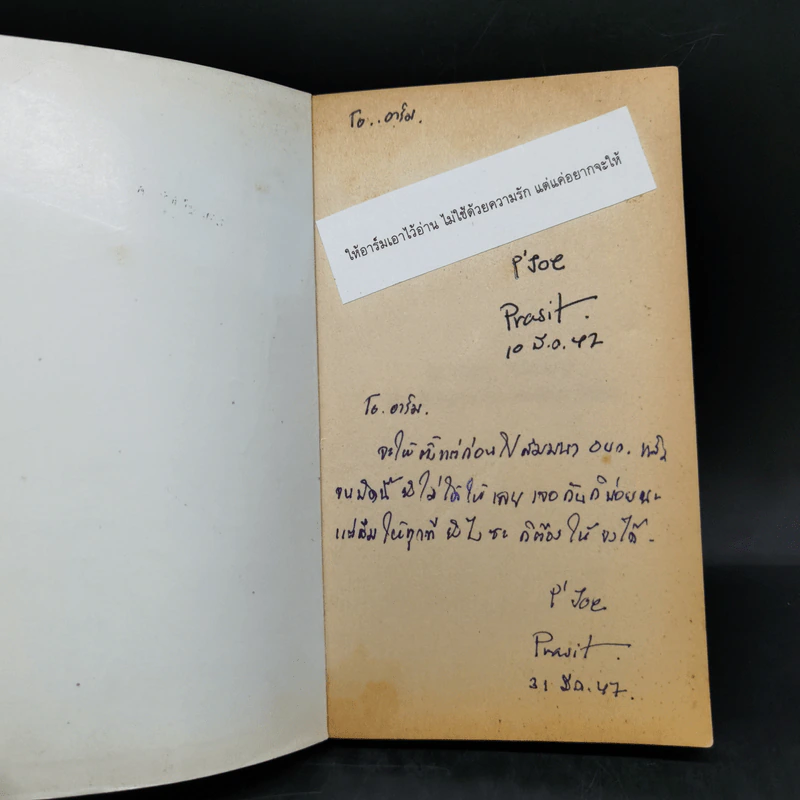 โอ..อาร์ม.
ให้อาร์มเอาไว้อ่าน ไม่ใช่ด้วยความรัก แต่แค่อยากจะให้
P'Joe
Prasit.
10 มี.ค. 42
โอ. อาร์ม.
จะให้ตั้งแต่ก่อนไปสัมมนา อบก.
จนบัดนี้ ยังไม่ได้ให้เลย เจอกันก็บ่อยนะ
แต่ลืมให้ทุกที ยังไงซะ ก็ต้องให้จงได้
P'Joe
Prasit.
31 มี.ค. 47.